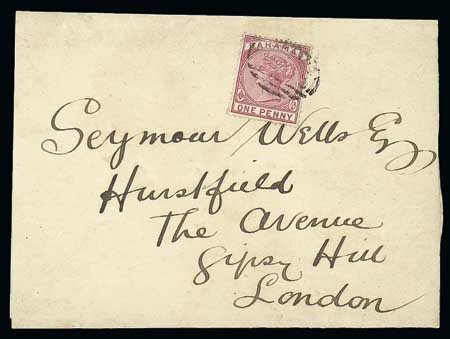 BAHAMAS
ONE PENNY
Seymour Wells Esq
Hurstfield
The Avenue
Gipsy Hill
London